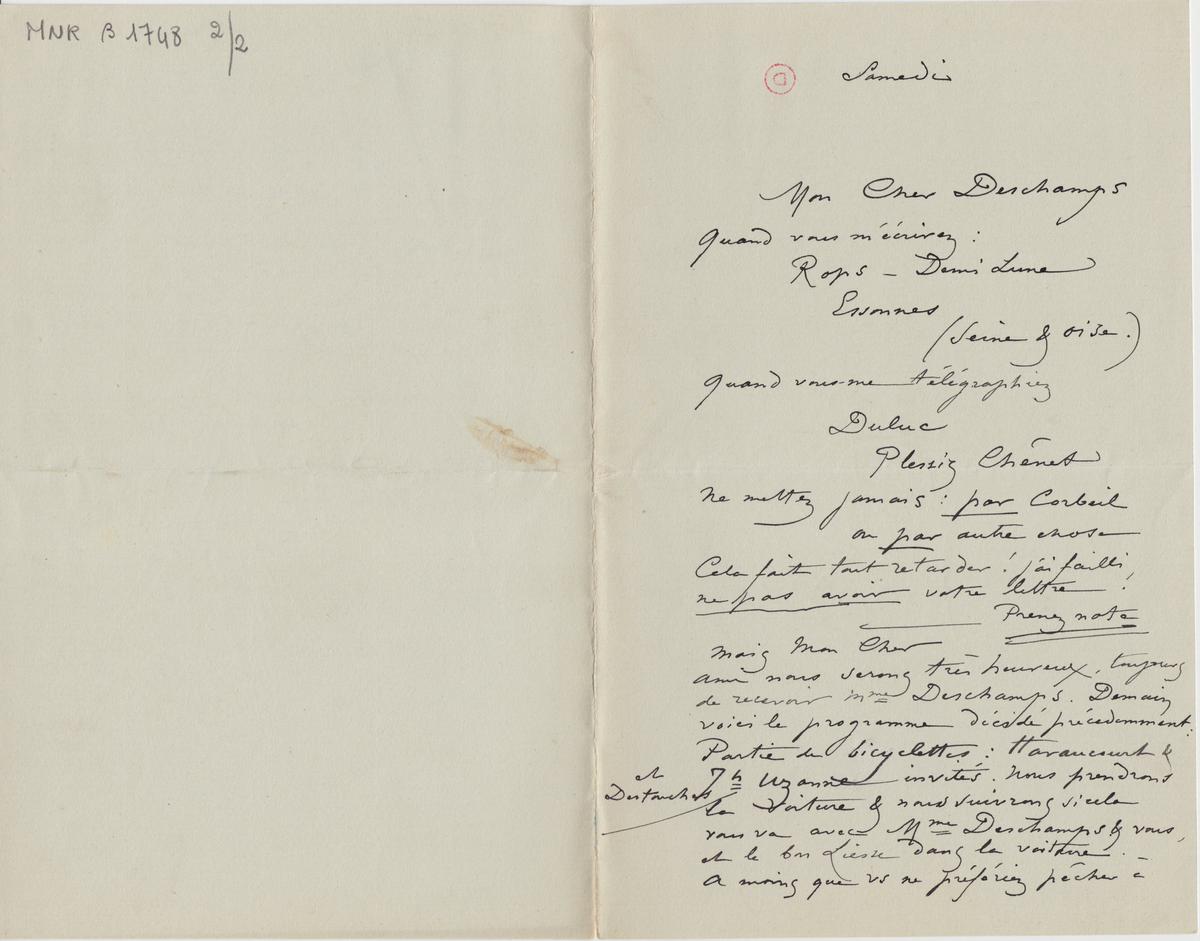 MNR B 1748 2/2
D
Samedi
Mon Cher Deschamps
Quand vous m'écrivez :
Rops – Demi Lune
Essonnes
(Seine & Oise.)
Quand vous me télégraphiez
Duluc
Plessis Chênet
Ne mettez jamais : par Corbeil
ou par autre chose
Cela fait tout retarder ! j'ai failli
ne pas avoir votre lettre !
Prenez note
Mais Mon Cher
ami nous serons très heureux, toujours
de recevoir Mme Deschamps. Demain
voici le programme décidé précédemment :
Partie de bicyclettes : Haraucourt &
et
Destouches
Jh Uzanne invités. Nous prendrons
la Voiture & nous suivrons si cela
vous va avec Mme Deschamps & vous,
et le bon Liesse dans la voiture. –
A moins que vs ne préfériez pêcher à